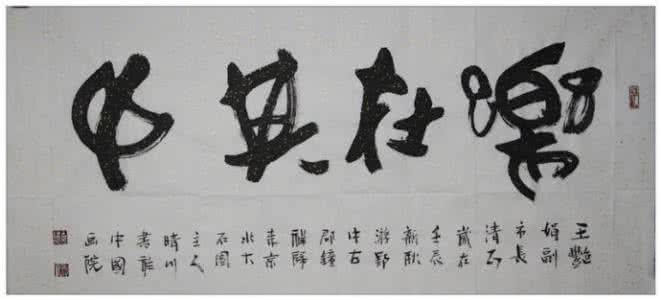 樂在其中
王艷
娟副
市長
清正
歲在
壬辰
新秋
游郢
中古
郡鐘
祥歸
來京
水大
石園
主人
晴川
書於
中國
画院